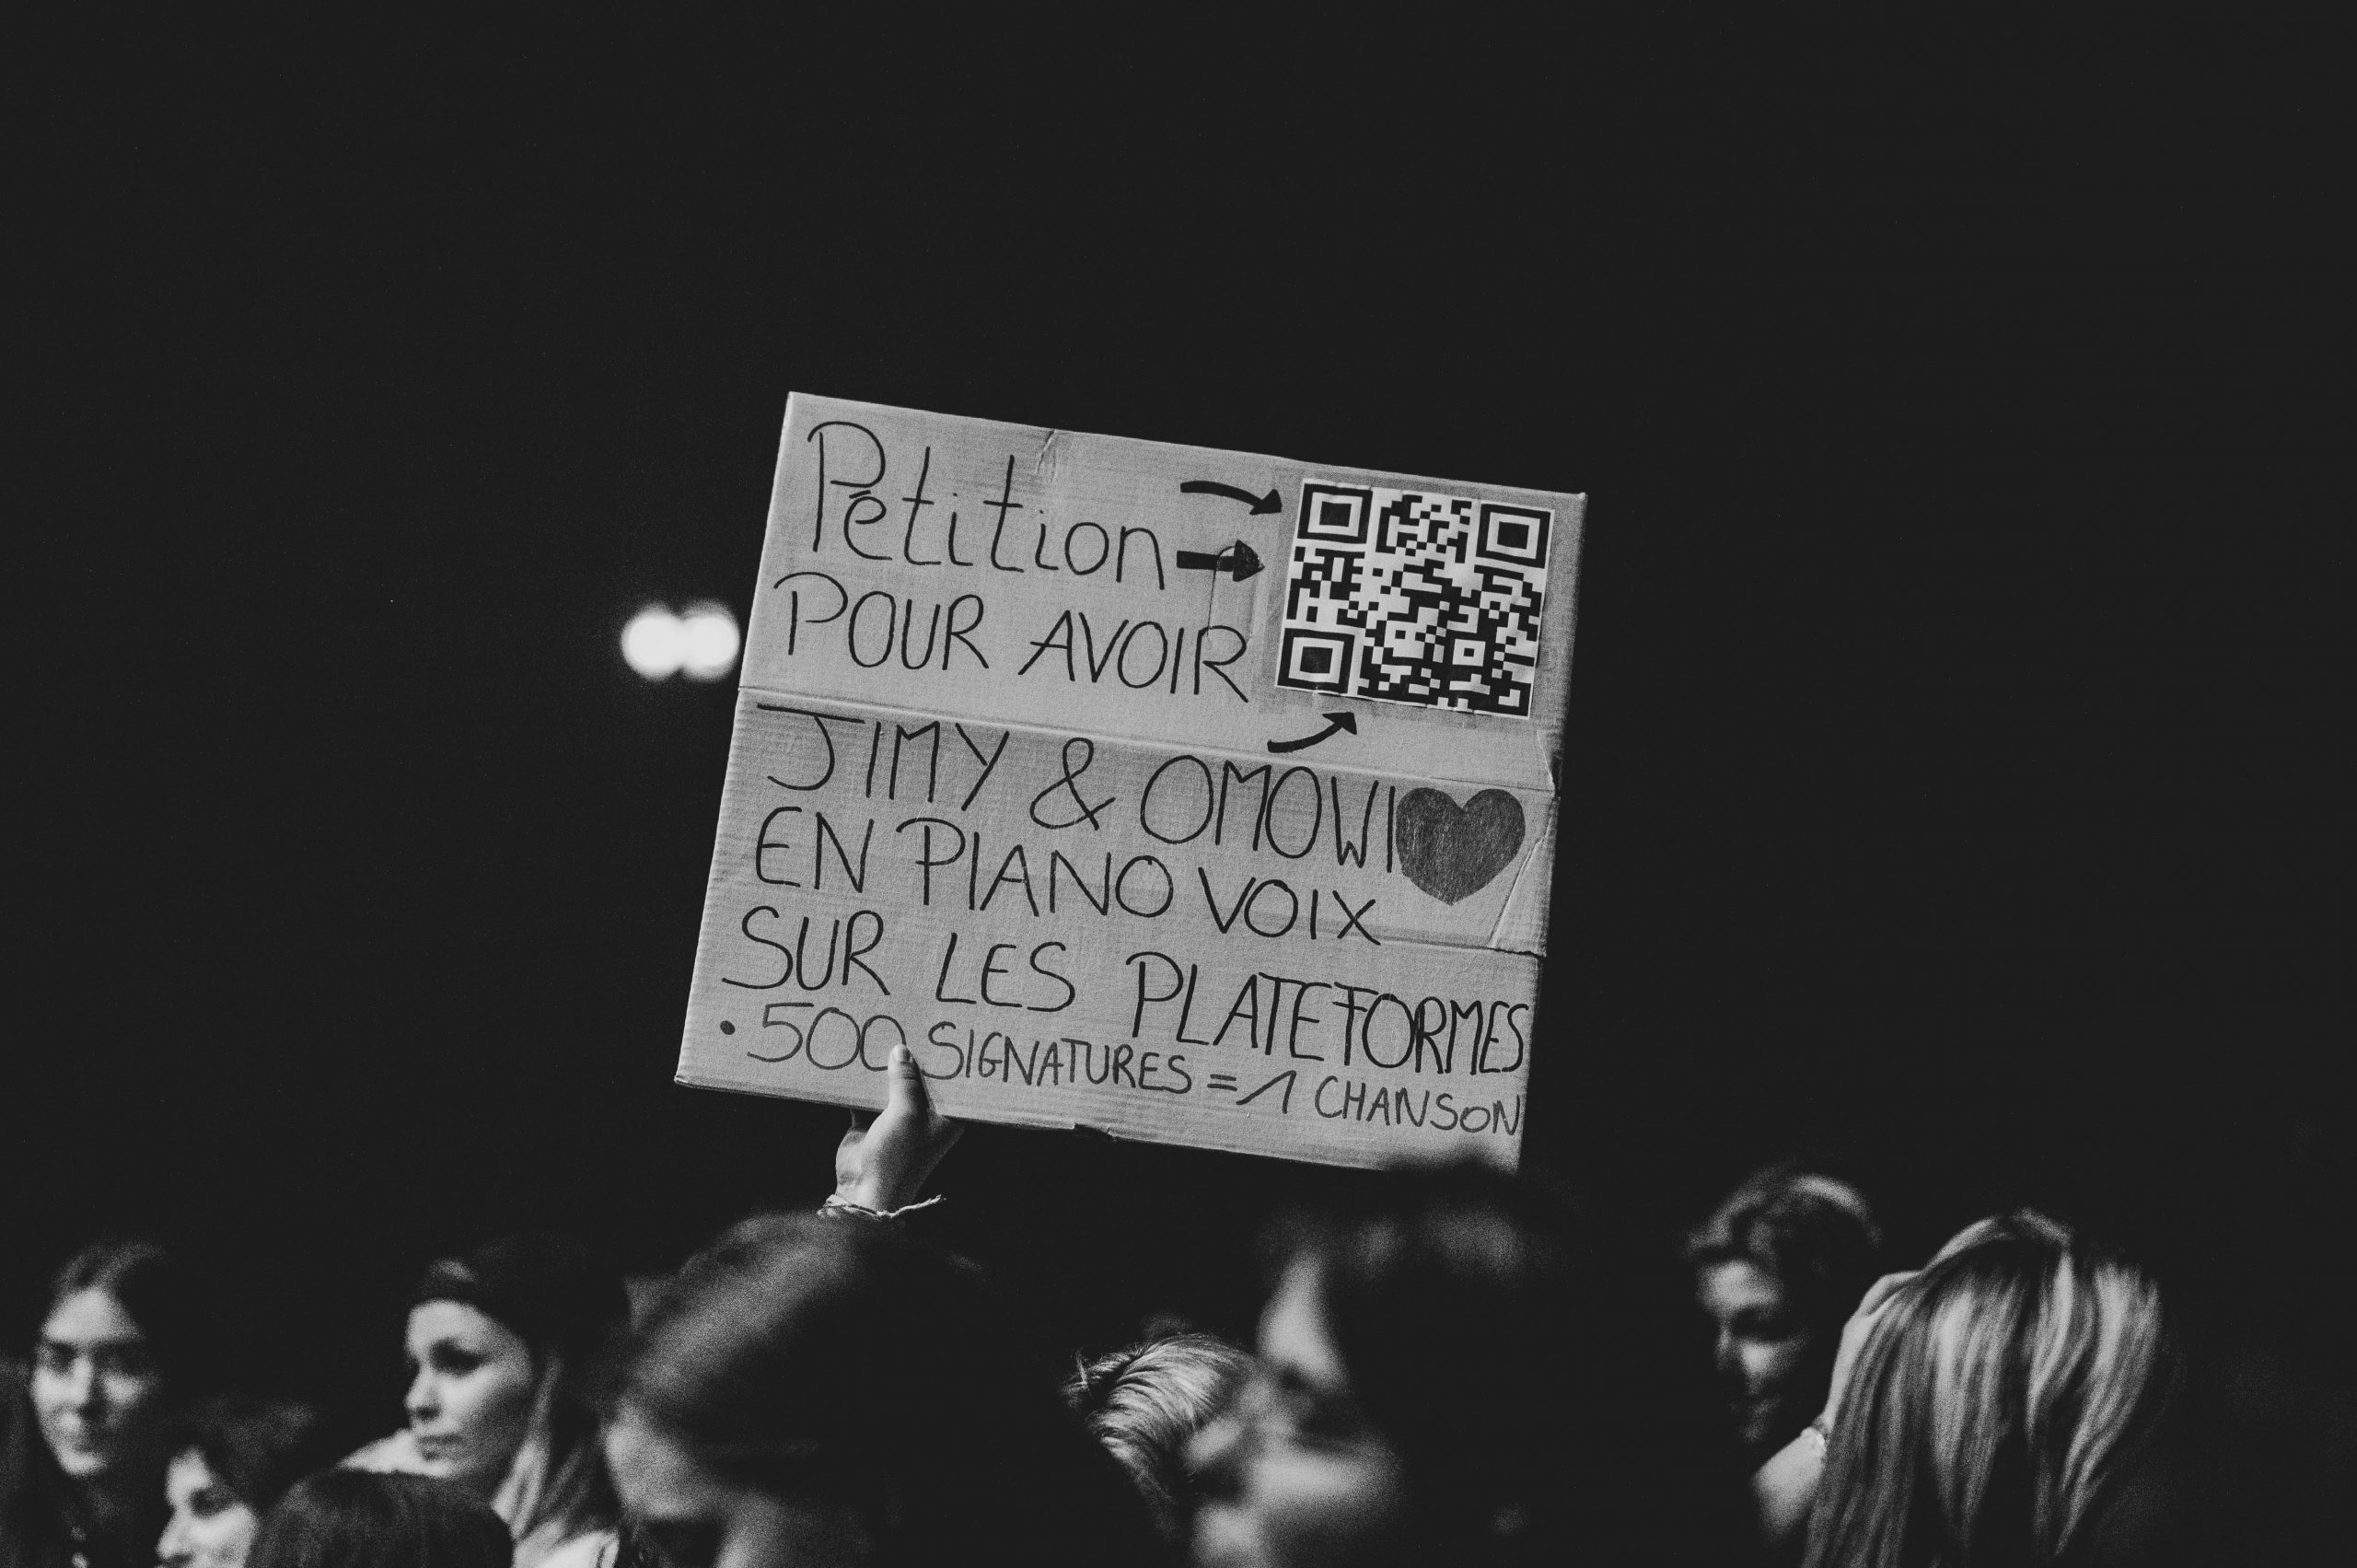 Pétition
POUR AVOIR
JIMY & OMOWI
EN PIANO VOIX
SUR LES PLATEFORMES
• 500 SIGNATURES = 1 CHANSON